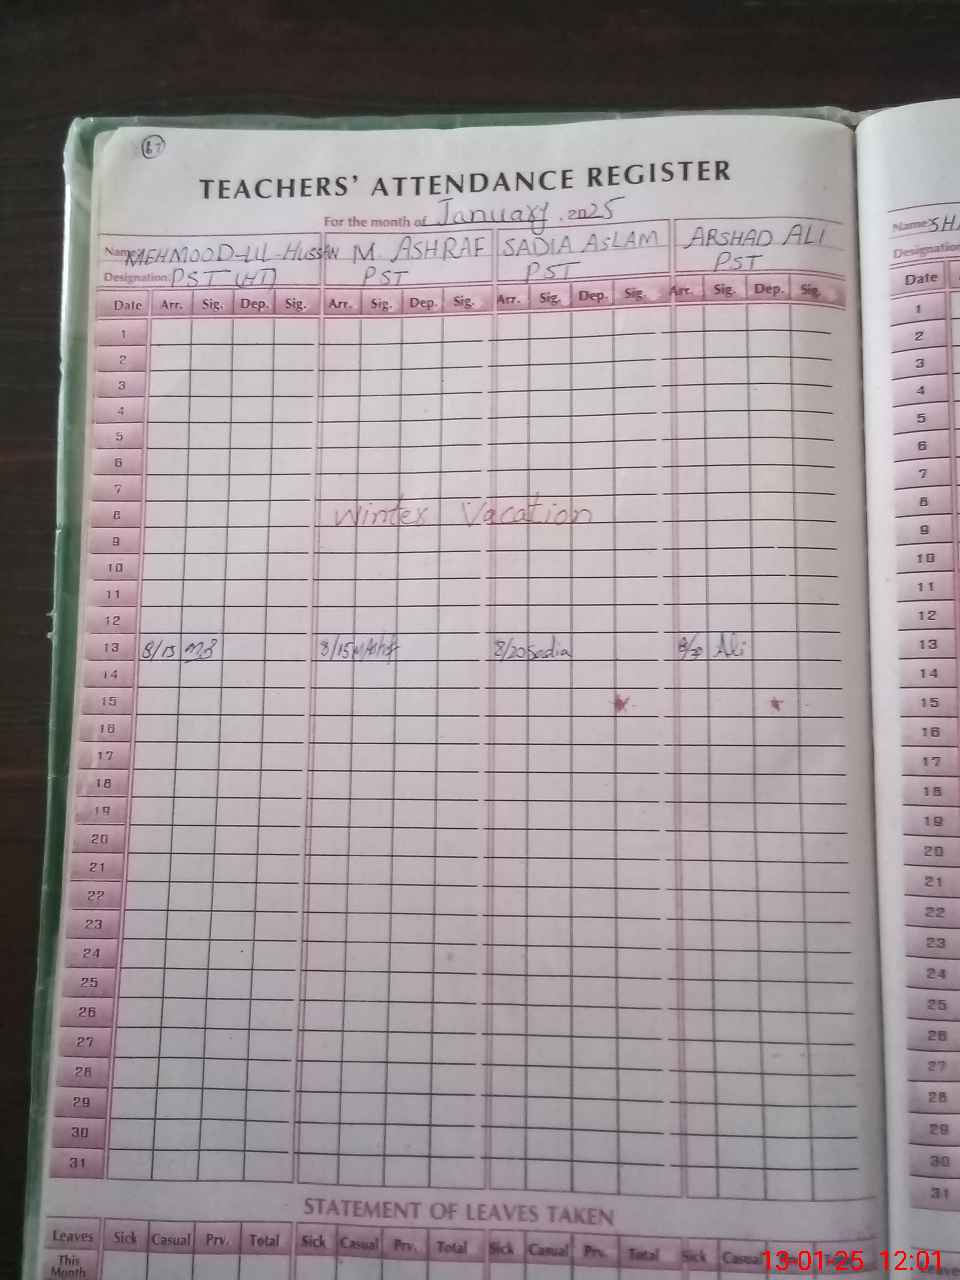 67
TEACHERS' ATTENDANCE REGISTER
For the month of January. 2025
Name MEHMOOD-UL-HUSSAN M. ASHRAF SADIA ASLAM ARSHAD ALI
Designation: PST (HT) PST PST PST
Date Arr. Sig. Dep. Sig. Arr. Sig. Dep. Sig. Arr. Sig. Dep. Sig. Arr. Sig. Dep. Sig.
1
2
3
4
5
6
7
8 Winter Vacation
9
10
11
12
13 8/15 8/15 8/20 Sadia Ali
14
15
16
17
18
19
20
21
22
23
24
25
26
27
28
29
30
31
STATEMENT OF LEAVES TAKEN
Leaves Sick Casual Prv. Total Sick Casual Prv. Total Sick Casual Prv. Total Sick Casual
This
Month
Name SHA
Designation
Date
1
2
3
4
5
6
7
8
9
10
11
12
13
14
15
16
17
18
19
20
21
22
23
24
25
26
27
28
29
30
31
13-01-25 12:01